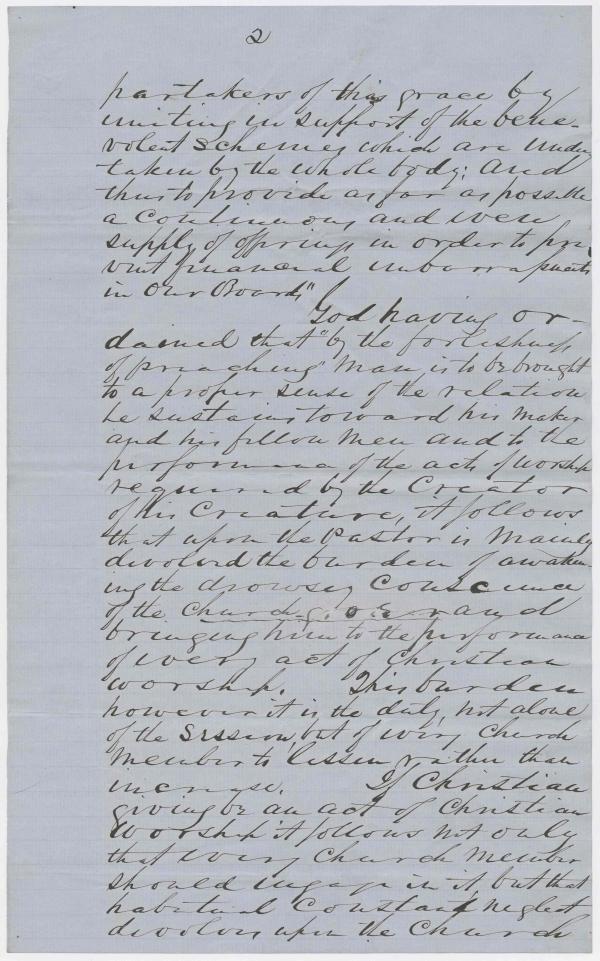 2
partakers of this grace by
uniting in support of the bene-
volent Schemes which are under
taken by the whole body; And
thus to provide as far as possible
a Continuous and even
supply of offerings in order to pre
vent financial embarrassments
in Our Boards"
God having or-
dained that "by the foolishness
of preaching" Man is to be brought
to a proper sense of the relation
he sustains toward his Maker
and his fellow Men and to the
performance of the acts of worship
required by the Creator
of his Creature, it follows
that upon the Pastor is Mainly
devolved the burden of awaken
ing the drowsey Conscience
of the Church goer and
bringing him to the performance
of every act of Christian
worship. This burden
however it is the duty, not alone
of the Session, but of every Church
Member to lessen rather than
increase. If Christian
giving be an act of Christian
Worship it follows not only
that every Church Member
should engage in it, but that
habitual Constant neglect
devolves upon the Church